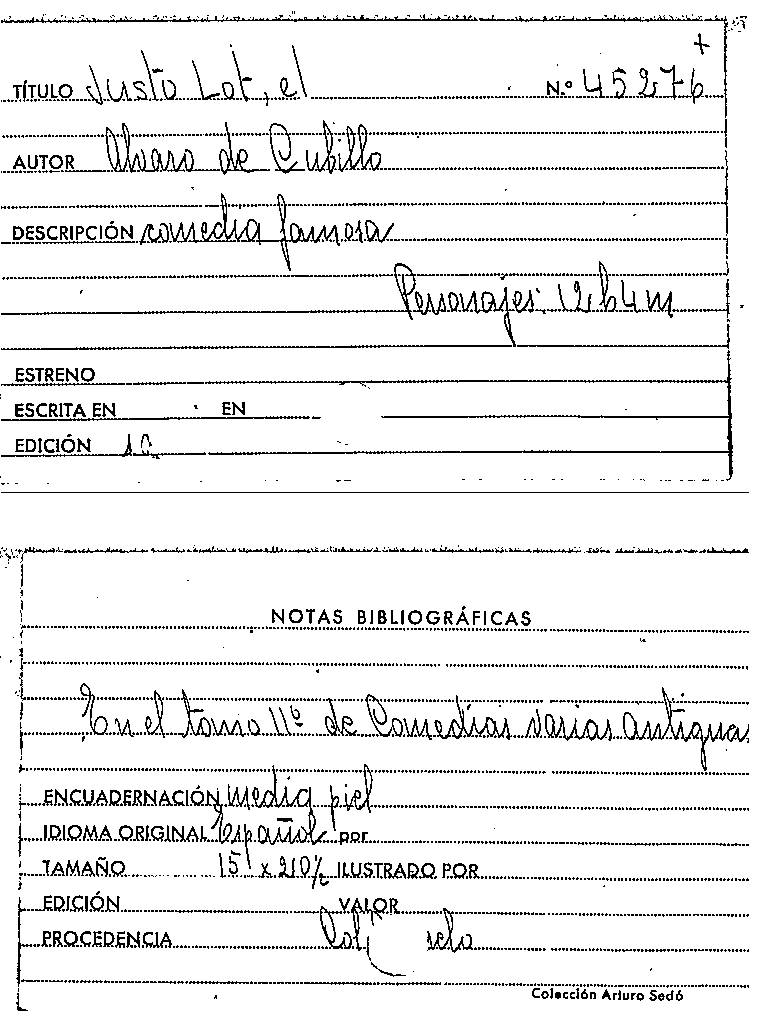 +
TÍTULO Justo Lot, el N.º 45276
AUTOR Alvaro de Cubillo
DESCRIPCIÓN comedia famosa
Personajes: 12 h 4 m
ESTRENO
ESCRITA EN EN
EDICIÓN
NOTAS BIBLIOGRÁFICAS
En el tomo 11º de Comedias varias antiguas
ENCUADERNACIÓN media piel
IDIOMA ORIGINAL Español por
TAMAÑO 15 x 210½ ILUSTRADO POR
EDICIÓN VALOR
PROCEDENCIA
Colección Arturo Sedó